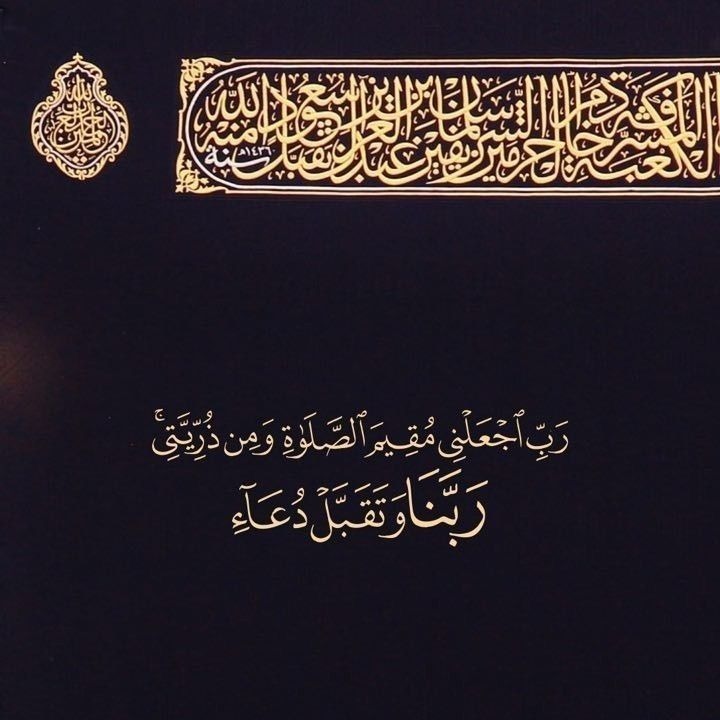 الحمد لله رب العالمين
الكعبة المشرفة خادم الحرمين الشريفين سلمان بن عبد العزيز آل سعود تقبل الله منه
سنة ١٤٣٦هـ
رَبِّ ٱجۡعَلۡنِي مُقِيمَ ٱلصَّلَوٰةِ وَمِن ذُرِّيَّتِيۚ
رَبَّنَا وَتَقَبَّلۡ دُعَآءِ